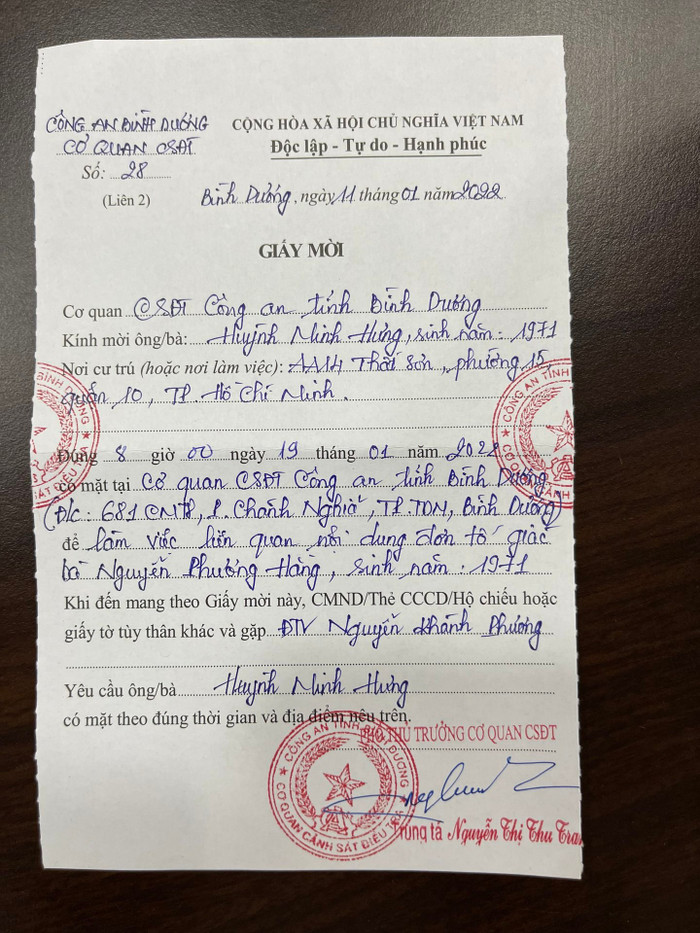 CÔNG AN BÌNH DƯƠNG
CƠ QUAN CSĐT
Số: 28
(Liên 2)
CỘNG HÒA XÃ HỘI CHỦ NGHĨA VIỆT NAM
Độc lập - Tự do - Hạnh phúc
Bình Dương, ngày 11 tháng 01 năm 2022
GIẤY MỜI
Cơ quan CSĐT Công an tỉnh Bình Dương
Kính mời ông/bà: Huỳnh Minh Hưng, sinh năm: 1971
Nơi cư trú (hoặc nơi làm việc): AA14 Thất Sơn, phường 15
quận 10, TP. Hồ Chí Minh.
Đúng 8 giờ 00 ngày 19 tháng 01 năm 2022
có mặt tại Cơ quan CSĐT Công an tỉnh Bình Dương
(Đ/c: 681 CMT8, P. Chánh Nghĩa, TP. TDM, Bình Dương)
để làm việc liên quan nội dung đơn tố giác
bà Nguyễn Phương Hằng, sinh năm: 1971
Khi đến mang theo Giấy mời này, CMND/Thẻ CCCD/Hộ chiếu hoặc
giấy tờ tùy thân khác và gặp ĐTV Nguyễn Khánh Phương
Yêu cầu ông/bà Huỳnh Minh Hưng
có mặt theo đúng thời gian và địa điểm nêu trên.
THỦ TRƯỞNG CƠ QUAN CSĐT
CÔNG AN TỈNH BÌNH DƯƠNG
CƠ QUAN CẢNH SÁT ĐIỀU
Trung tá Nguyễn Thị Thu